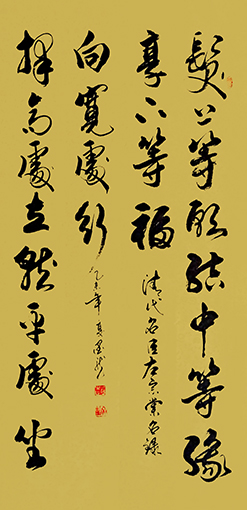 髮上等願結中等緣
享下等福
清代名臣左宗棠名錄
擇高處立就平處坐
向寬處行
乙未年夏